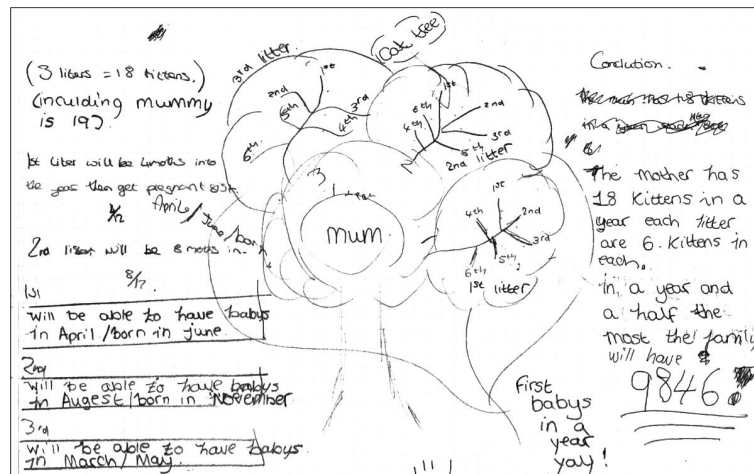 (3 liters = 18 kittens.)
(inculding mummy
is 19).
1st liter will be 4moths into
the year then get pregnant
April / June / born
2nd litter will be 8 moths in.
8/12
1st
will be able to have babys
in April / born in june.
2nd
will be able to have babys
in Augest / born in November
3rd
will be able to have babys
in March / May.
oak tree
3rd litter.
1st
2nd
3rd
4th
5th
6th
1st
2nd
3rd
4th
5th
6th
2nd litter
3
mum
1st
2nd
3rd
4th
5th
6th
1st litter
first
babys
in a
year
yay!
Conclution.
The mother has
18 kittens in a
year each litter
are 6. kittens in
each.
in a year and
a half the
most the family
will have
9846.